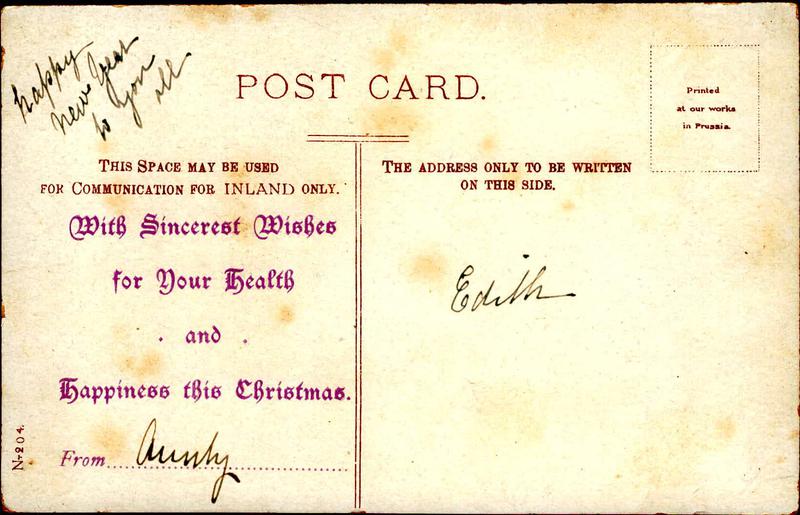 Happy
New Year
to you
all
POST CARD.
Printed
at our works
in Prussia.
THIS SPACE MAY BE USED
FOR COMMUNICATION FOR INLAND ONLY.
With Sincerest Wishes
for Your Health
. and .
Happiness this Christmas.
From Aunty
N-204.
THE ADDRESS ONLY TO BE WRITTEN
ON THIS SIDE.
Edith